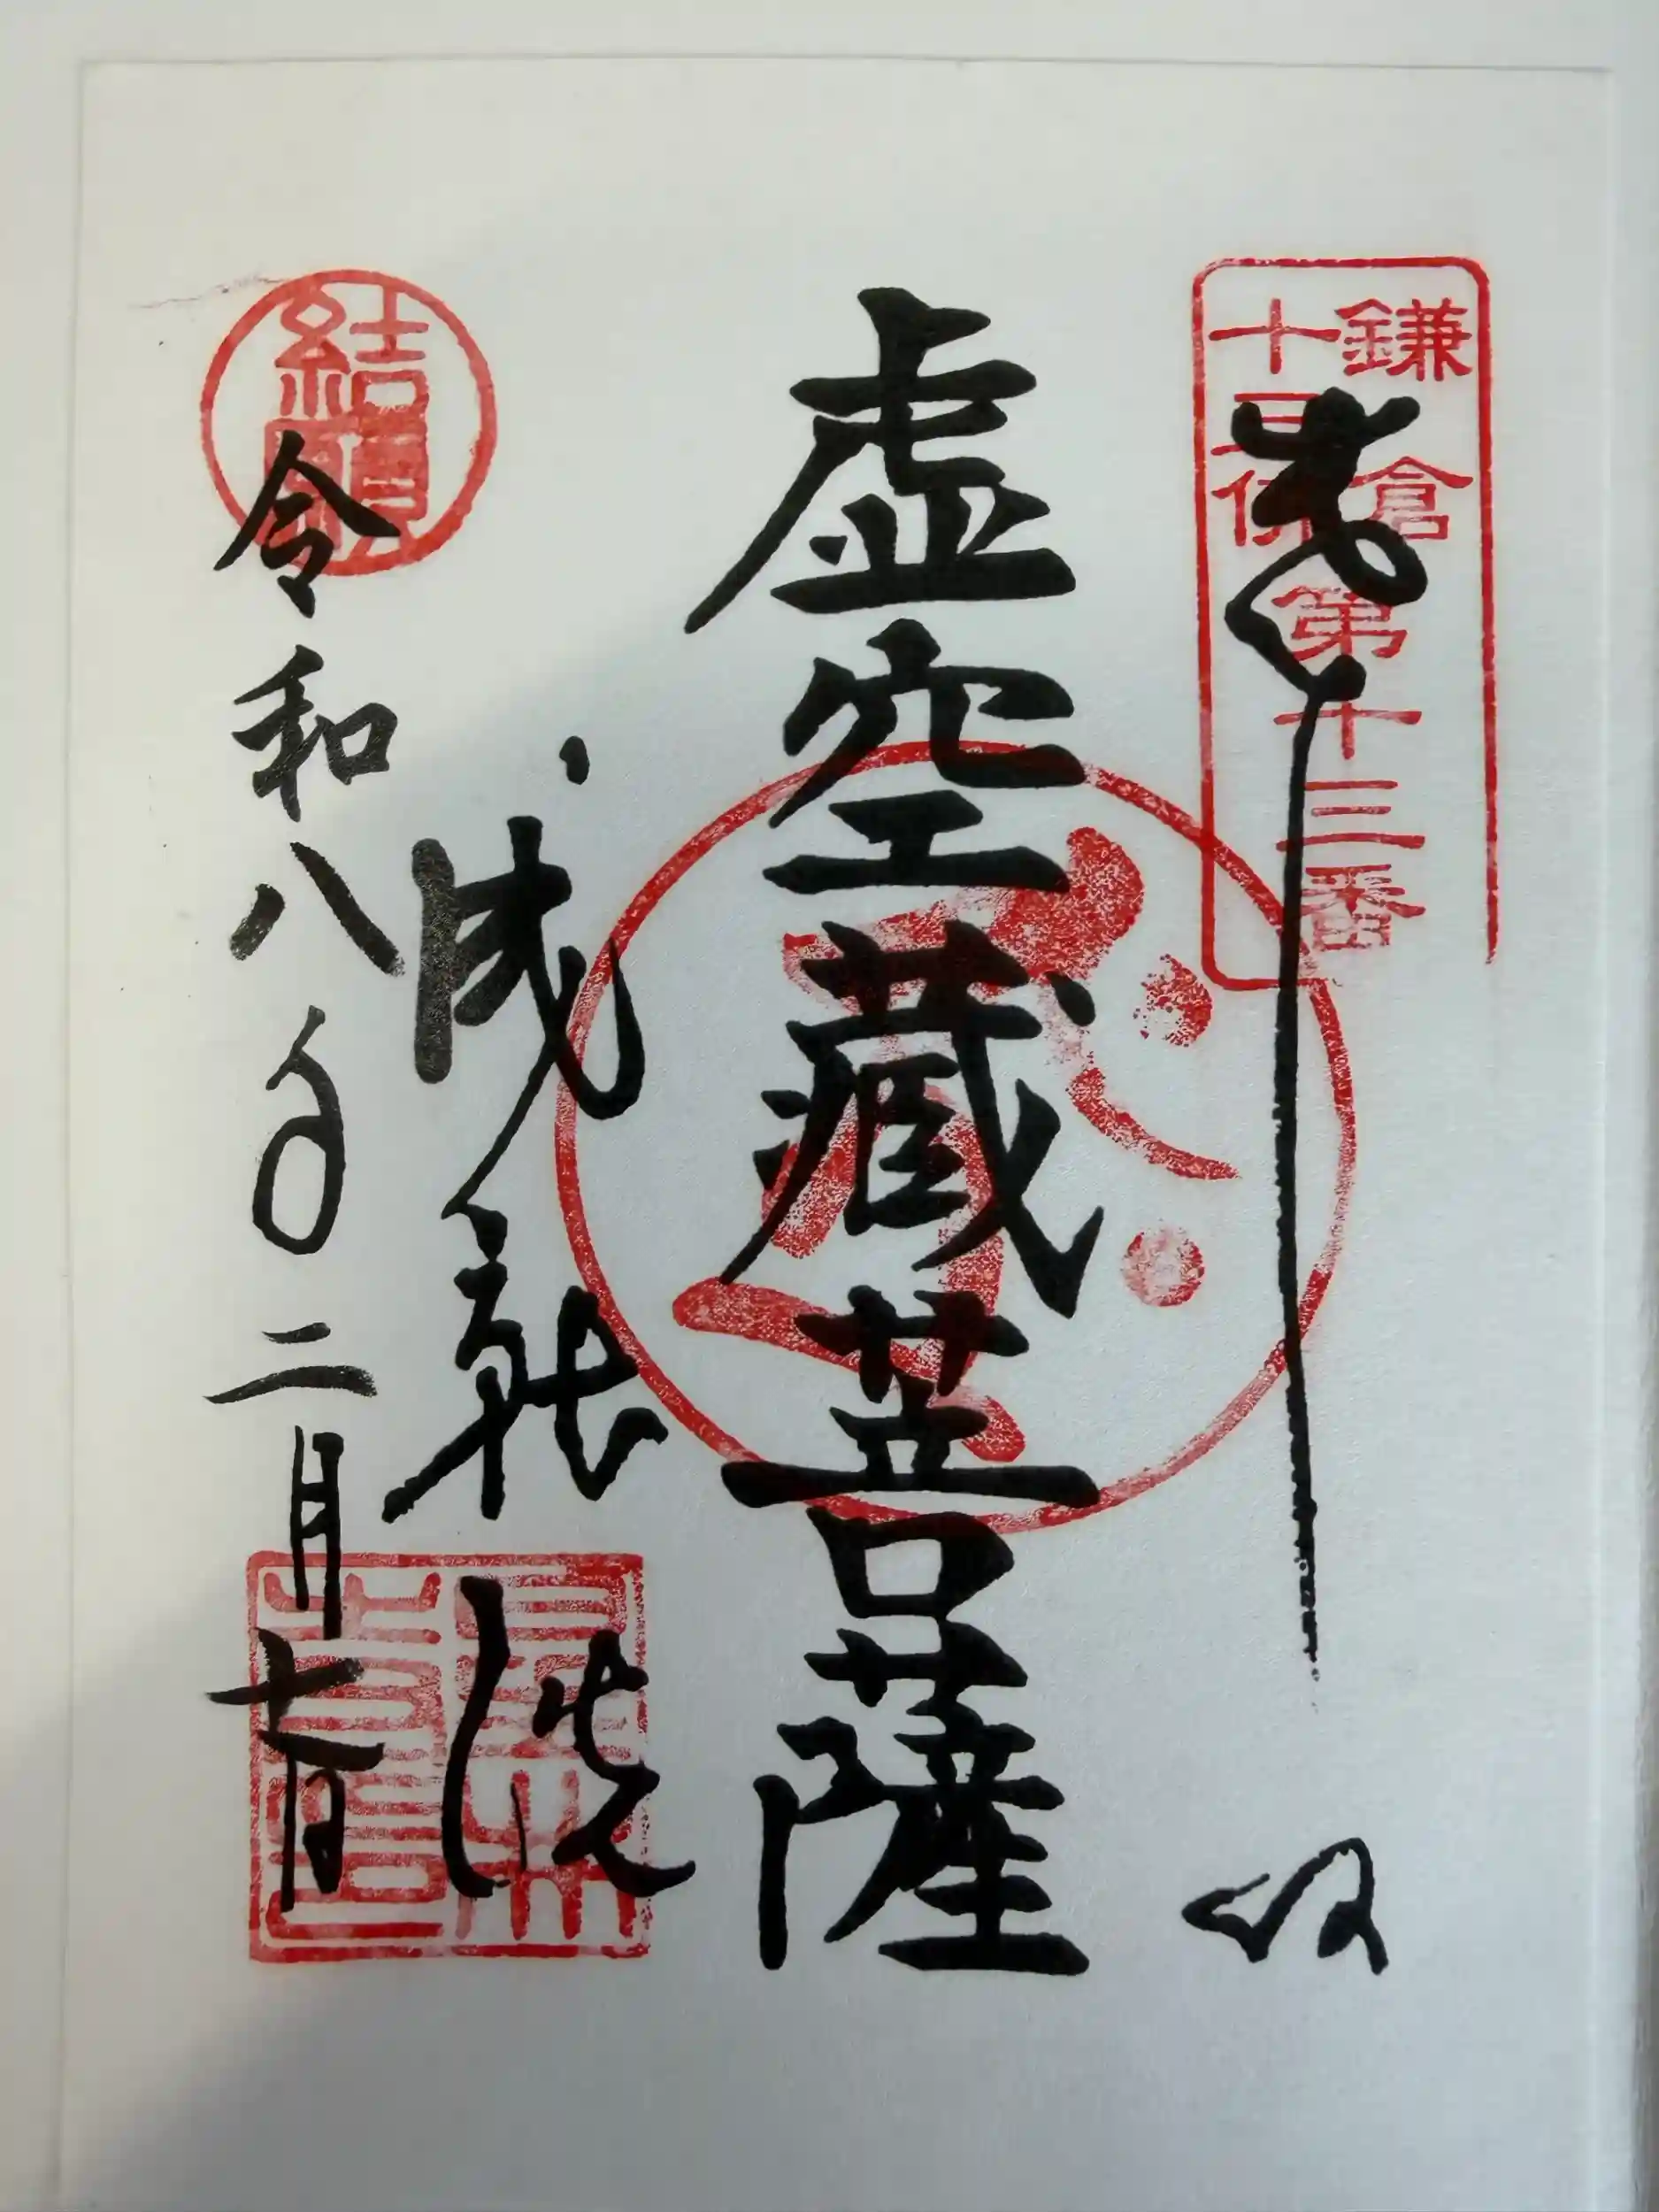 鎌倉
十三佛
第十三番
奉拝
虚空藏菩薩
成就院
結願
令和八年二月七日